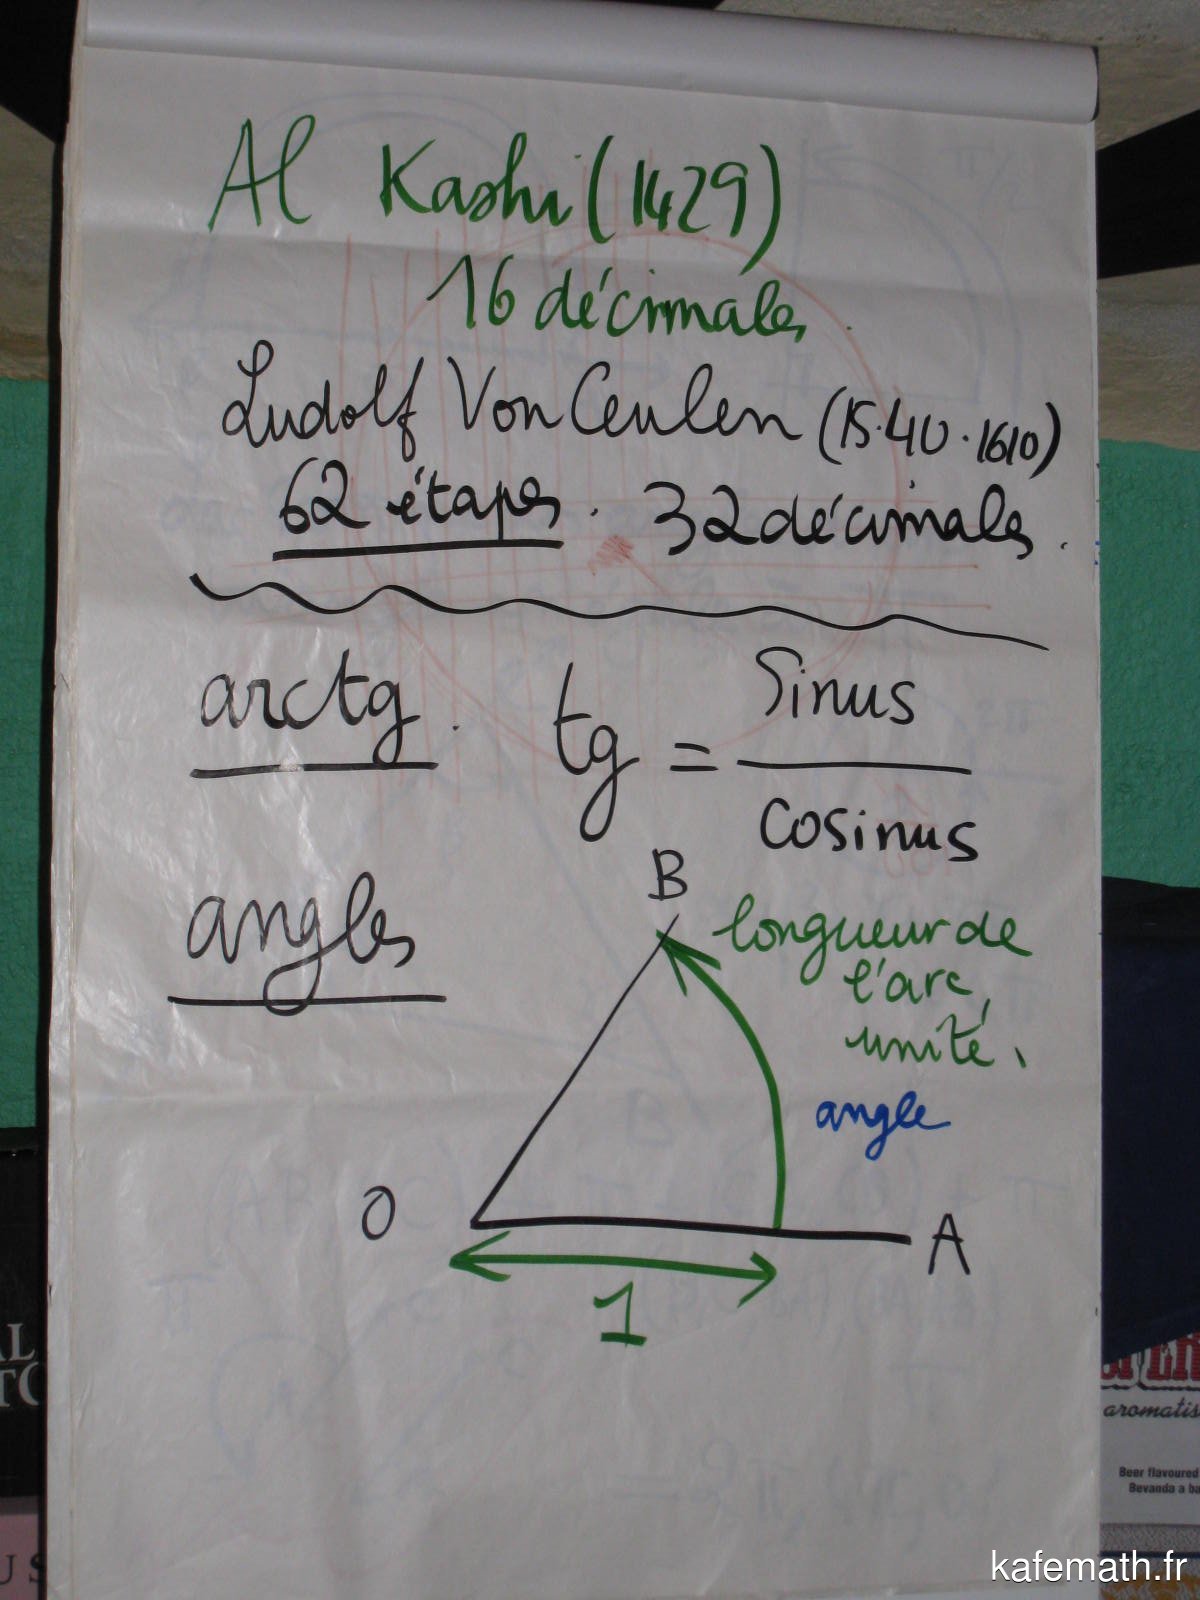 Al Kashi (1429)
16 décimales.
Ludolf Von Ceulen (1540.1610)
62 étapes. 32 décimales.
arctg. tg = Sinus
cosinus
angles
B
longueur de
l'arc,
unité.
angle
O
A
1
AL
TO
U S
aromatis
Beer flavoured
Bevanda a ba
kafemath.fr